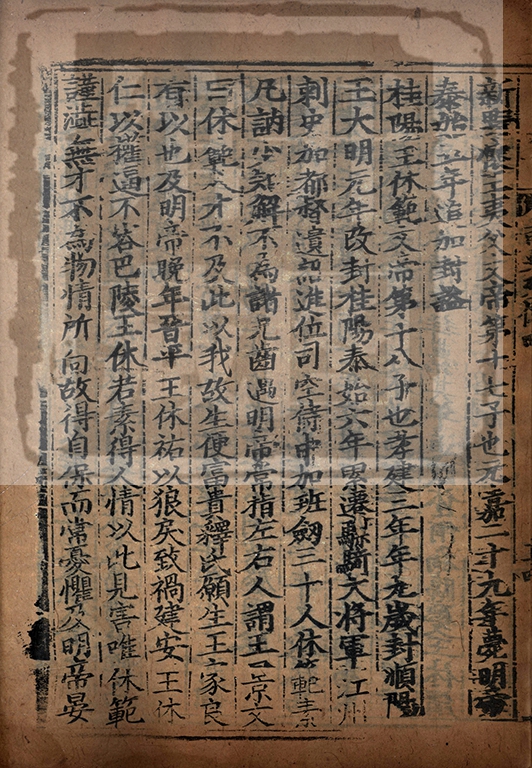 新野懷王夷父文帝第十七子也元嘉二十九年薨明帝
泰始五年追加封諡
桂陽王休範文帝第十八子也孝建三年年九歲封順陽
王大明元年改封桂陽泰始六年累遷驃騎大將軍江州
刺史加都督遺詔進位司空侍中加班劒三十人休範素
凡訥少知解不為諸兄齒遇明帝常指左右人謂王景文
曰休範人才不及此以我故生便富貴釋氏願生王家良
有以也及明帝晚年晉平王休祐以狼戾致禍建安王休
仁以權逼不容巴陵王休若素得人情以此見害唯休範
謹澁無才不為物情所向故得自保而常憂懼及明帝晏